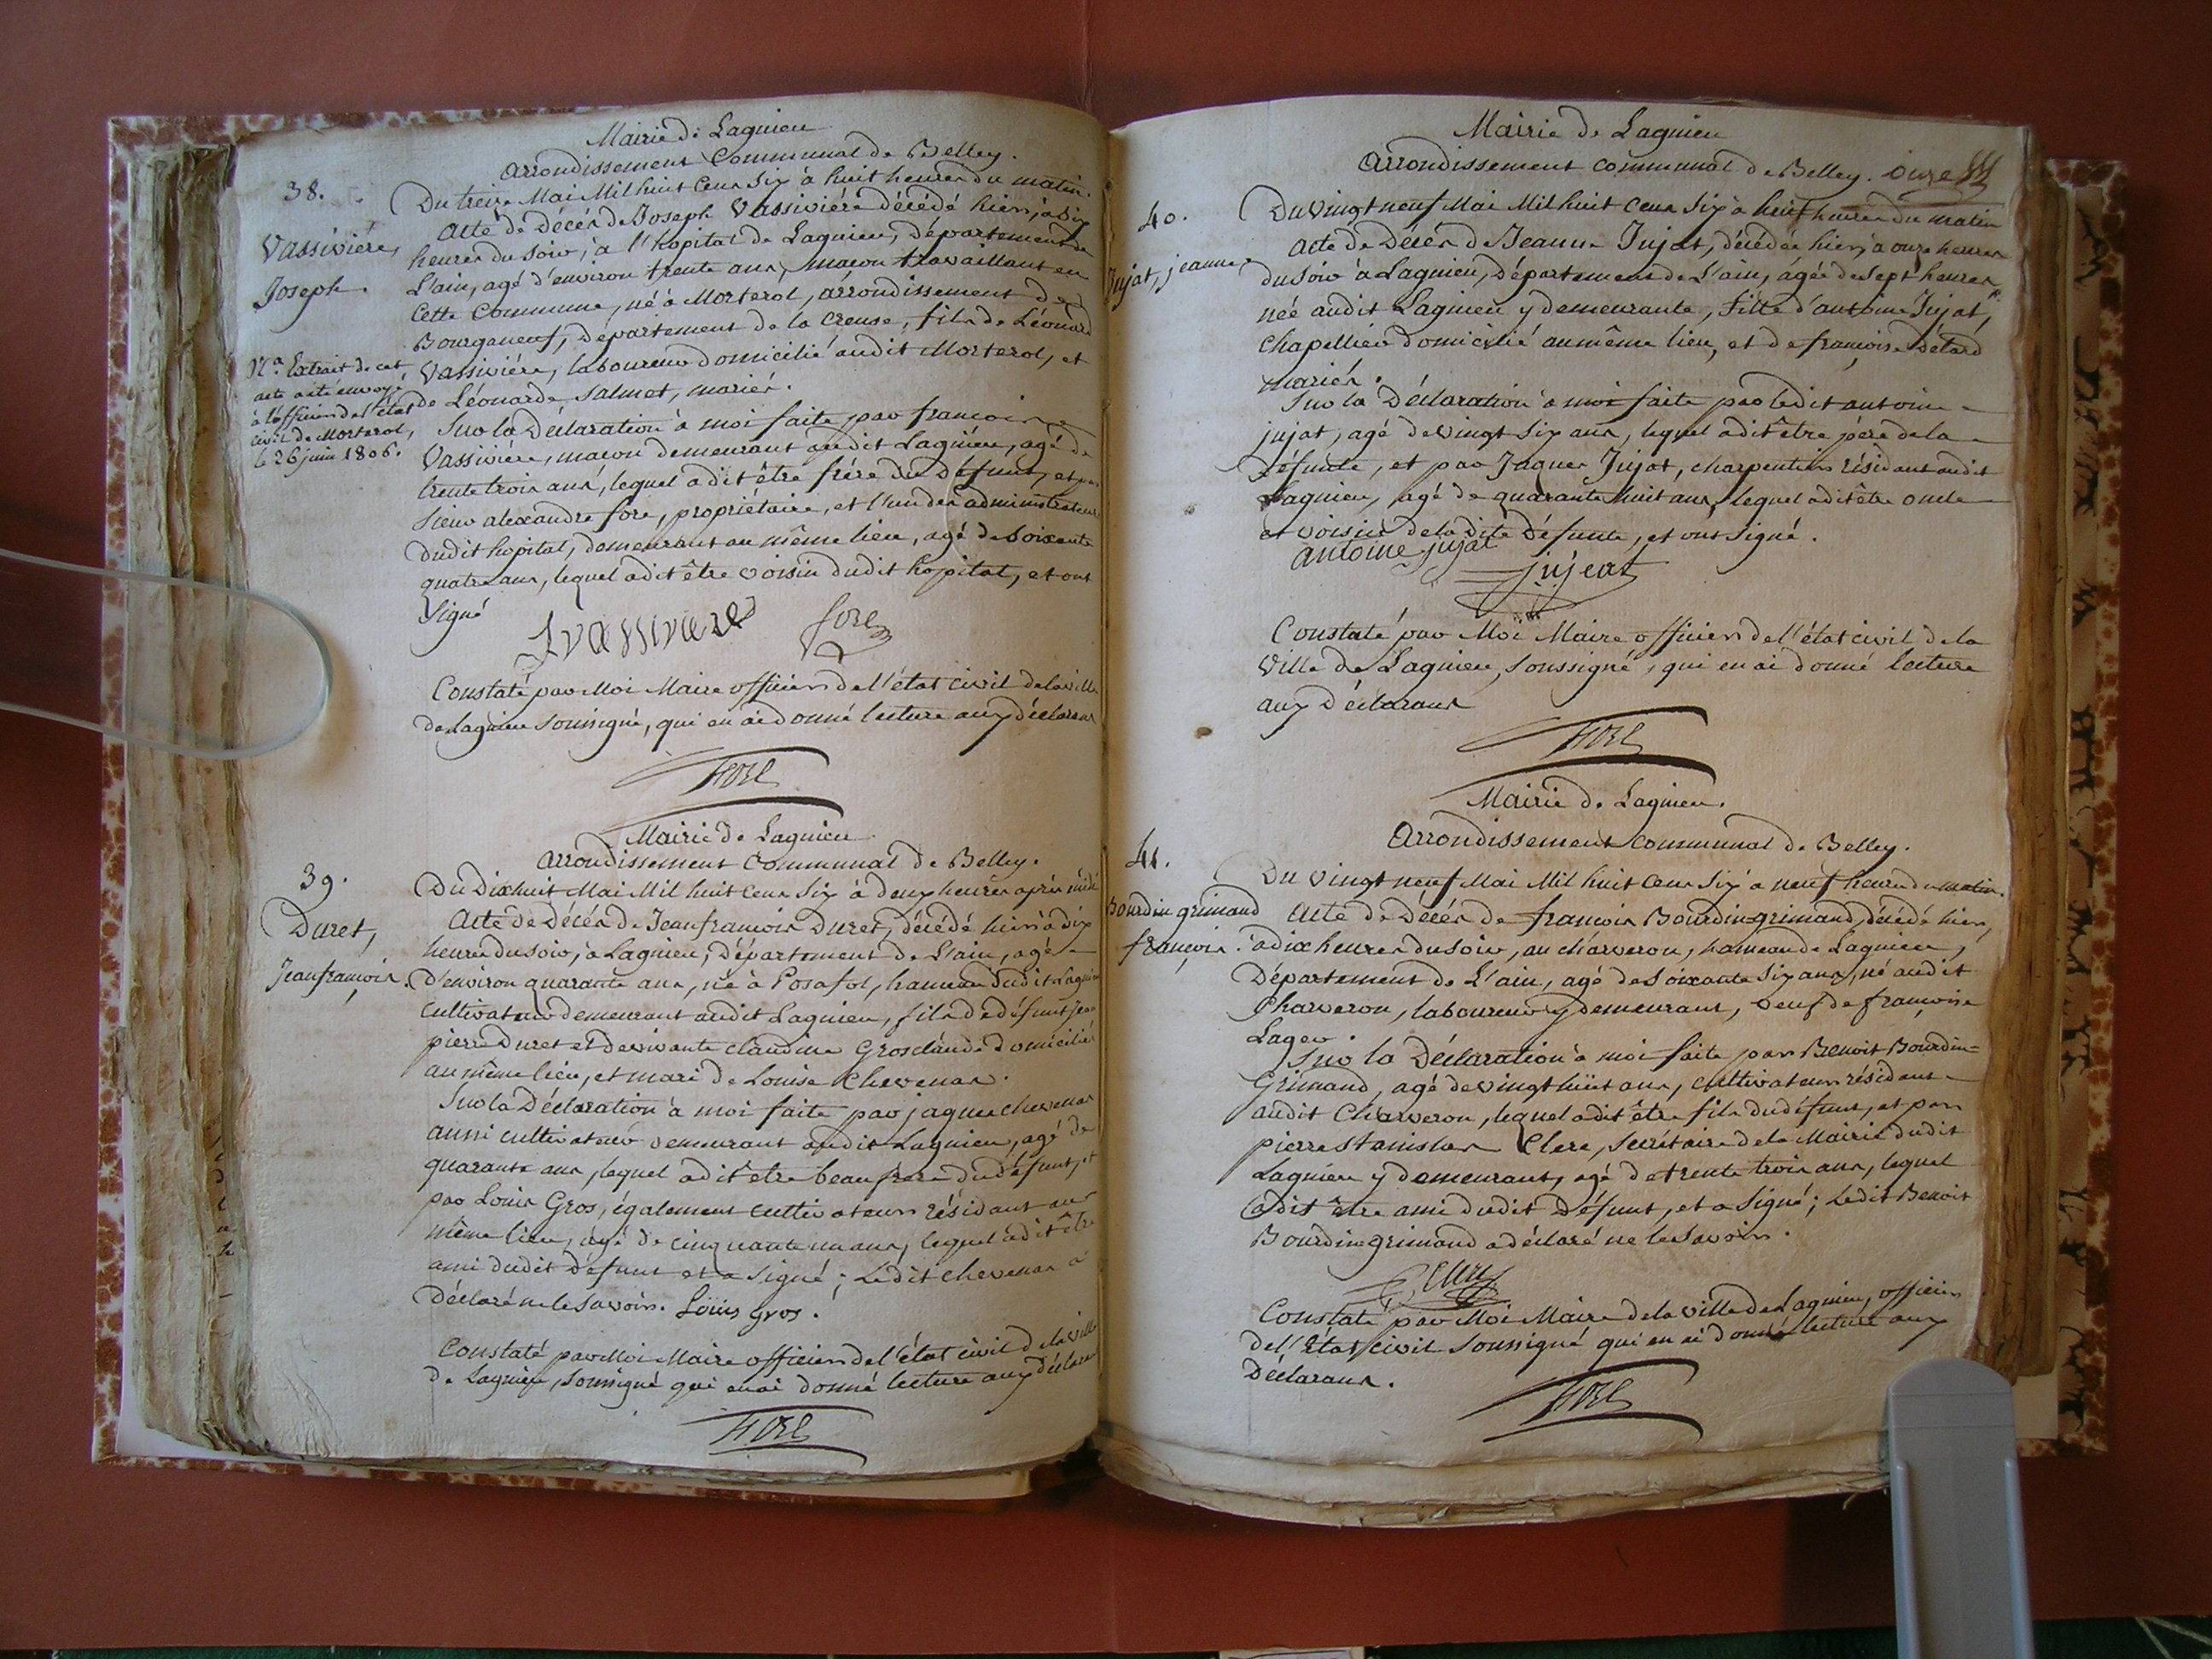 Mairie de Lagnieu
Arrondissement Communal de Belley.
38.
Du treize Mai Mil huit Cent Six à huit heures du matin.
Vassivière,
Joseph.
Acte de Décès de Joseph Vassivière décédé hier, à Six
heures du Soir, à l'hopital de Lagnieu, département de
L'ain, agé d'environ trente ans, maçon travaillant en
Cette Commune, né à Morterol, arrondissement de
Bourganeuf, département de la Creuse, fils de Léonard
Vassivière, laboureur domicilié audit Morterol, et
de Léonarde Salmet, mariés.
Nta Extrait de cet
acte a été envoyé
à l'officier de l'état
civil de Morterol,
le 26 juin 1806.
Sur la Déclaration à moi faite par françois
Vassivière, maçon demeurant audit Lagnieu, agé de
trente trois ans, lequel a dit être frère du Défunt, et par
Sieur alexandre fore, propriétaire, et l'un des administrateurs
dudit hopital, demeurant au même lieu, agé de Soixante
quatre ans, lequel a dit être voisin dudit hopital, et ont
Signé
fvassiviere fore
Constaté par Moi Maire officier de l'état civil de la ville
de Lagnieu soussigné, qui en ai donné lecture aux déclarans
Fore
Mairie de Lagnieu
Arrondissement Communal de Belley.
39.
Duret,
Jean françois.
Du Dix huit Mai Mil huit Cent Six à deux heures après midi
Acte de Décès de Jean françois Duret, décédé hier à dix
heures du soir, à Lagnieu, Département de L'ain, agé
d'environ quarante ans, né à Posafol, hameau dudit Lagnieu
Cultivateur demeurant audit Lagnieu, fils de défunt jean
pierre Duret et de vivante claudine Grosclaude domiciliés
au même lieu, et mari de Louise Chevenas.
Sur la Déclaration à moi faite par jaques chevenas
aussi cultivateur demeurant audit Lagnieu, agé de
quarante ans, lequel a dit être beau frere dudit défunt, et
par Louis Gros, également cultivateur résidant au
même lieu, agé de cinquante un ans, lequel a dit être
ami dudit défunt et a Signé; Ledit chevenas a
Déclaré ne le savoir. Loüis gros.
Constaté par Moi Maire officier de l'état civil de la ville
de Lagnieu, soussigné qui en ai donné lecture aux déclarans
Fore
Mairie de Lagnieu
Arrondissement communal de Belley. onze
40.
Jujat, jeanne.
Du Vingt neuf Mai Mil huit Cent Six à huit heures du matin
Acte de Décès de Jeanne Jujat, décédée hier, à onze heures
du soir à Lagnieu, Département de L'ain, agée de Sept heures,
née audit Lagnieu y demeurante, fille d'antoine Jujat,
Chapellier domicilié au même lieu, et de françoise Détard
mariés.
Sur la Déclaration à moi faite par ledit antoine
jujat, agé de vingt six ans, lequel a dit être père de la
Défunte, et par Jaques Jujat, charpentier résidant audit
Lagnieu, agé de quarante huit ans, lequel a dit être oncle
et voisin de la dite Défunte, et ont Signé.
antoine jujat
jujeat
Constaté par Moi Maire officier de l'état civil de la
Ville de Lagnieu, soussigné, qui en ai donné lecture
aux Déclarans
Fore
Mairie de Lagnieu.
Arrondissement communal de Belley.
41.
Bourdin grimand
françois.
Du Vingt neuf Mai Mil huit Cent Six à neuf heures du matin.
Acte de Décès de françois Bourdin grimand, décédé hier,
à dix heures du soir, au charveron, hameau de Lagnieu,
Département de L'ain, agé de Soixante Six ans, né audit
Charveron, laboureur y demeurant, veuf de françoise
Lager.
Sur la Déclaration à moi faite par Benoit Bourdin-
Grimand, agé de vingt huit ans, cultivateur résidant
audit Charveron, lequel a dit être fils du défunt, et par
pierre stanislas Clerc, secrétaire de la Mairie dudit
Lagnieu y demeurant, agé de trente trois ans, lequel
a dit être ami dudit Défunt, et a Signé; Ledit Benoit
Bourdin grimand a déclaré ne le Savoir.
Clerc
Constaté par Moi Maire de la ville de Lagnieu, officier
de l'Etat civil soussigné qui en ai donné lecture aux
Déclarans.
Fore